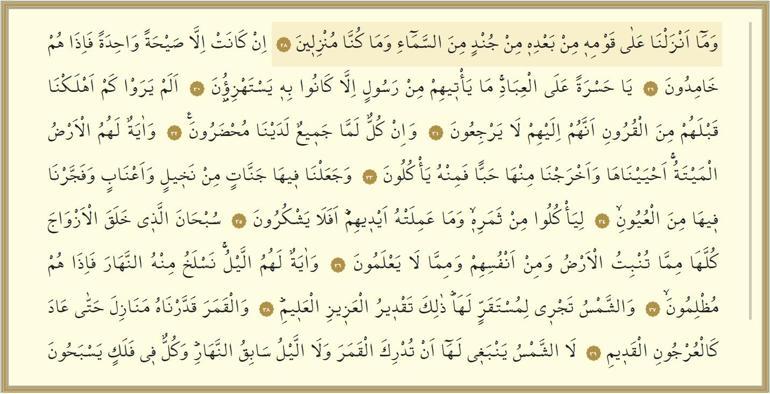 وَمَٓا اَنْزَلْنَا عَلٰى قَوْمِه۪ مِنْ بَعْدِه۪ مِنْ جُنْدٍ مِنَ السَّمَٓاءِ وَمَا كُنَّا مُنْزِل۪ينَ ٢٨ اِنْ كَانَتْ اِلَّا صَيْحَةً وَاحِدَةً فَاِذَا هُمْ
خَامِدُونَ ٢٩ يَا حَسْرَةً عَلَى الْعِبَادِۚ مَا يَأْت۪يهِمْ مِنْ رَسُولٍ اِلَّا كَانُوا بِه۪ يَسْتَهْزِؤُ۫نَ ٣٠ اَلَمْ يَرَوْا كَمْ اَهْلَكْنَا
قَبْلَهُمْ مِنَ الْقُرُونِ اَنَّهُمْ اِلَيْهِمْ لَا يَرْجِعُونَ ٣١ وَاِنْ كُلٌّ لَمَّا جَم۪يعٌ لَدَيْنَا مُحْضَرُونَ۟ ٣٢ وَاٰيَةٌ لَهُمُ الْاَرْضُ
الْمَيْتَةُۚ اَحْيَيْنَاهَا وَاَخْرَجْنَا مِنْهَا حَبًّا فَمِنْهُ يَأْكُلُونَ ٣٣ وَجَعَلْنَا ف۪يهَا جَنَّاتٍ مِنْ نَخ۪يلٍ وَاَعْنَابٍ وَفَجَّرْنَا
ف۪يهَا مِنَ الْعُيُونِۙ ٣٤ لِيَأْكُلُوا مِنْ ثَمَرِه۪ۙ وَمَا عَمِلَتْهُ اَيْد۪يهِمْۜ اَفَلَا يَشْكُرُونَ ٣٥ سُبْحَانَ الَّذ۪ي خَلَقَ الْاَزْوَاجَ
كُلَّهَا مِمَّا تُنْبِتُ الْاَرْضُ وَمِنْ اَنْفُسِهِمْ وَمِمَّا لَا يَعْلَمُونَ ٣٦ وَاٰيَةٌ لَهُمُ الَّيْلُۚ نَسْلَخُ مِنْهُ النَّهَارَ فَاِذَا هُمْ
مُظْلِمُونَۙ ٣٧ وَالشَّمْسُ تَجْر۪ي لِمُسْتَقَرٍّ لَهَاۜ ذٰلِكَ تَقْد۪يرُ الْعَز۪يزِ الْعَل۪يمِۜ ٣٨ وَالْقَمَرَ قَدَّرْنَاهُ مَنَازِلَ حَتّٰى عَادَ
كَالْعُرْجُونِ الْقَد۪يمِ ٣٩ لَا الشَّمْسُ يَنْبَغ۪ي لَهَٓا اَنْ تُدْرِكَ الْقَمَرَ وَلَا الَّيْلُ سَابِقُ النَّهَارِۜ وَكُلٌّ ف۪ي فَلَكٍ يَسْبَحُونَ